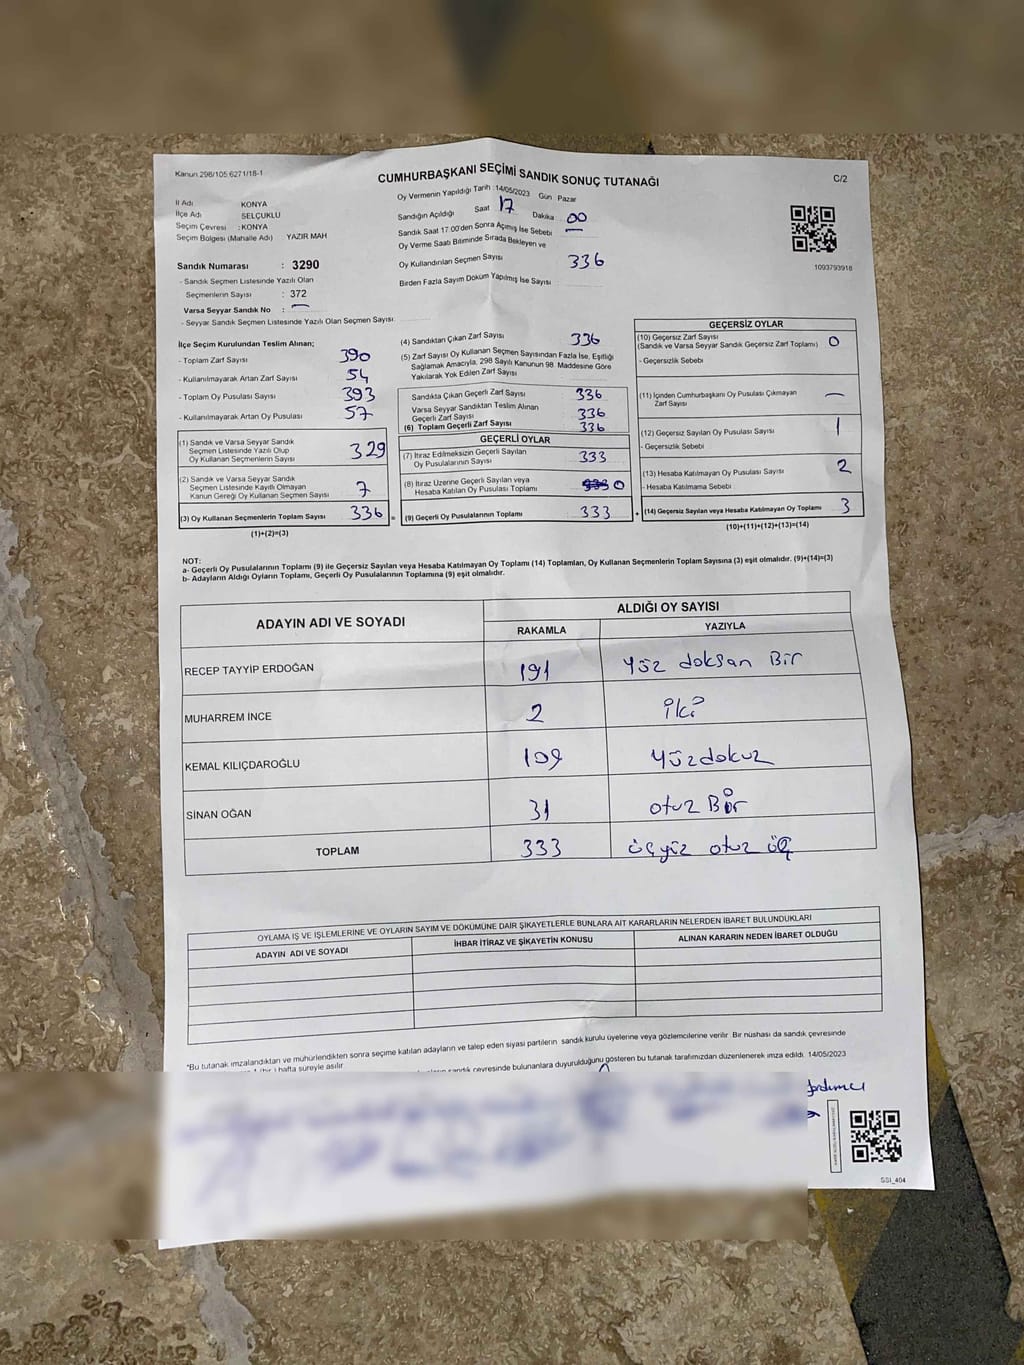 Kanun 298/105 6271/18-1
CUMHURBAŞKANI SEÇİMİ SANDIK SONUÇ TUTANAĞI
C/2
İl Adı KONYA
İlçe Adı SELÇUKLU
Seçim Çevresi : KONYA
Seçim Bölgesi (Mahalle Adı) : YAZIR MAH
Sandık Numarası : 3290
- Sandık Seçmen Listesinde Yazılı Olan
Seçmenlerin Sayısı : 372
Varsa Seyyar Sandık No : —
- Seyyar Sandık Seçmen Listesinde Yazılı Olan Seçmen Sayısı:
Oy Vermenin Yapıldığı Tarih : 14/05/2023 Gün Pazar
Sandığın Açıldığı Saat 17 Dakika 00
Sandık Saat 17.00'den Sonra Açılmış İse Sebebi —
Oy Verme Saati Bitiminde Sırada Bekleyen ve
Oy Kullandırılan Seçmen Sayısı 336
Birden Fazla Sayım Döküm Yapılmış İse Sayısı
1093793918
İlçe Seçim Kurulundan Teslim Alınan;
- Toplam Zarf Sayısı 390
- Kullanılmayarak Artan Zarf Sayısı 54
- Toplam Oy Pusulası Sayısı 393
- Kullanılmayarak Artan Oy Pusulası 57
(1) Sandık ve Varsa Seyyar Sandık
Seçmen Listesinde Yazılı Olup
Oy Kullanan Seçmenlerin Sayısı 329
(2) Sandık ve Varsa Seyyar Sandık
Seçmen Listesinde Kayıtlı Olmayan
Kanun Gereği Oy Kullanan Seçmen Sayısı 7
(3) Oy Kullanan Seçmenlerin Toplam Sayısı 336 =
(1)+(2)=(3)
(4) Sandıktan Çıkan Zarf Sayısı 336
(5) Zarf Sayısı Oy Kullanan Seçmen Sayısından Fazla İse, Eşitliği
Sağlamak Amacıyla, 298 Sayılı Kanunun 98. Maddesine Göre
Yakılarak Yok Edilen Zarf Sayısı
Sandıkta Çıkan Geçerli Zarf Sayısı 336
Varsa Seyyar Sandıktan Teslim Alınan
Geçerli Zarf Sayısı 336
(6) Toplam Geçerli Zarf Sayısı 336
GEÇERLİ OYLAR
(7) İtiraz Edilmeksizin Geçerli Sayılan
Oy Pusulalarının Sayısı 333
(8) İtiraz Üzerine Geçerli Sayılan veya
Hesaba Katılan Oy Pusulası Toplamı 0
(9) Geçerli Oy Pusulalarının Toplamı 333 +
GEÇERSİZ OYLAR
(10) Geçersiz Zarf Sayısı
(Sandık ve Varsa Seyyar Sandık Geçersiz Zarf Toplamı) 0
- Geçersizlik Sebebi
(11) İçinden Cumhurbaşkanı Oy Pusulası Çıkmayan
Zarf Sayısı —
(12) Geçersiz Sayılan Oy Pusulası Sayısı 1
- Geçersizlik Sebebi
(13) Hesaba Katılmayan Oy Pusulası Sayısı 2
- Hesaba Katılmama Sebebi :
(14) Geçersiz Sayılan veya Hesaba Katılmayan Oy Toplamı 3
(10)+(11)+(12)+(13)=(14)
NOT:
a- Geçerli Oy Pusulalarının Toplamı (9) ile Geçersiz Sayılan veya Hesaba Katılmayan Oy Toplamı (14) Toplamları, Oy Kullanan Seçmenlerin Toplam Sayısına (3) eşit olmalıdır. (9)+(14)=(3)
b- Adayların Aldığı Oyların Toplamı, Geçerli Oy Pusulalarının Toplamına (9) eşit olmalıdır.
ADAYIN ADI VE SOYADI ALDIĞI OY SAYISI
RAKAMLA YAZIYLA
RECEP TAYYİP ERDOĞAN 191 Yüz doksan Bir
MUHARREM İNCE 2 iki
KEMAL KILIÇDAROĞLU 109 Yüzdokuz
SİNAN OĞAN 31 otuz Bir
TOPLAM 333 üçyüz otuz üç
OYLAMA İŞ VE İŞLEMLERİNE VE OYLARIN SAYIM VE DÖKÜMÜNE DAİR ŞİKAYETLERLE BUNLARA AİT KARARLARIN NELERDEN İBARET BULUNDUKLARI
ADAYIN ADI VE SOYADI İHBAR İTİRAZ VE ŞİKAYETİN KONUSU ALINAN KARARIN NEDEN İBARET OLDUĞU
*Bu tutanak imzalandıktan ve mühürlendikten sonra seçime katılan adayların ve talep eden siyasi partilerin sandık kurulu üyelerine veya gözlemcilerine verilir. Bir nüshası da sandık çevresinde
hafta süreyle asılır
sandık çevresinde bulunanlara duyurulduğunu gösteren bu tutanak tarafımızdan düzenlenerek imza edildi. 14/05/2023
SSI_404